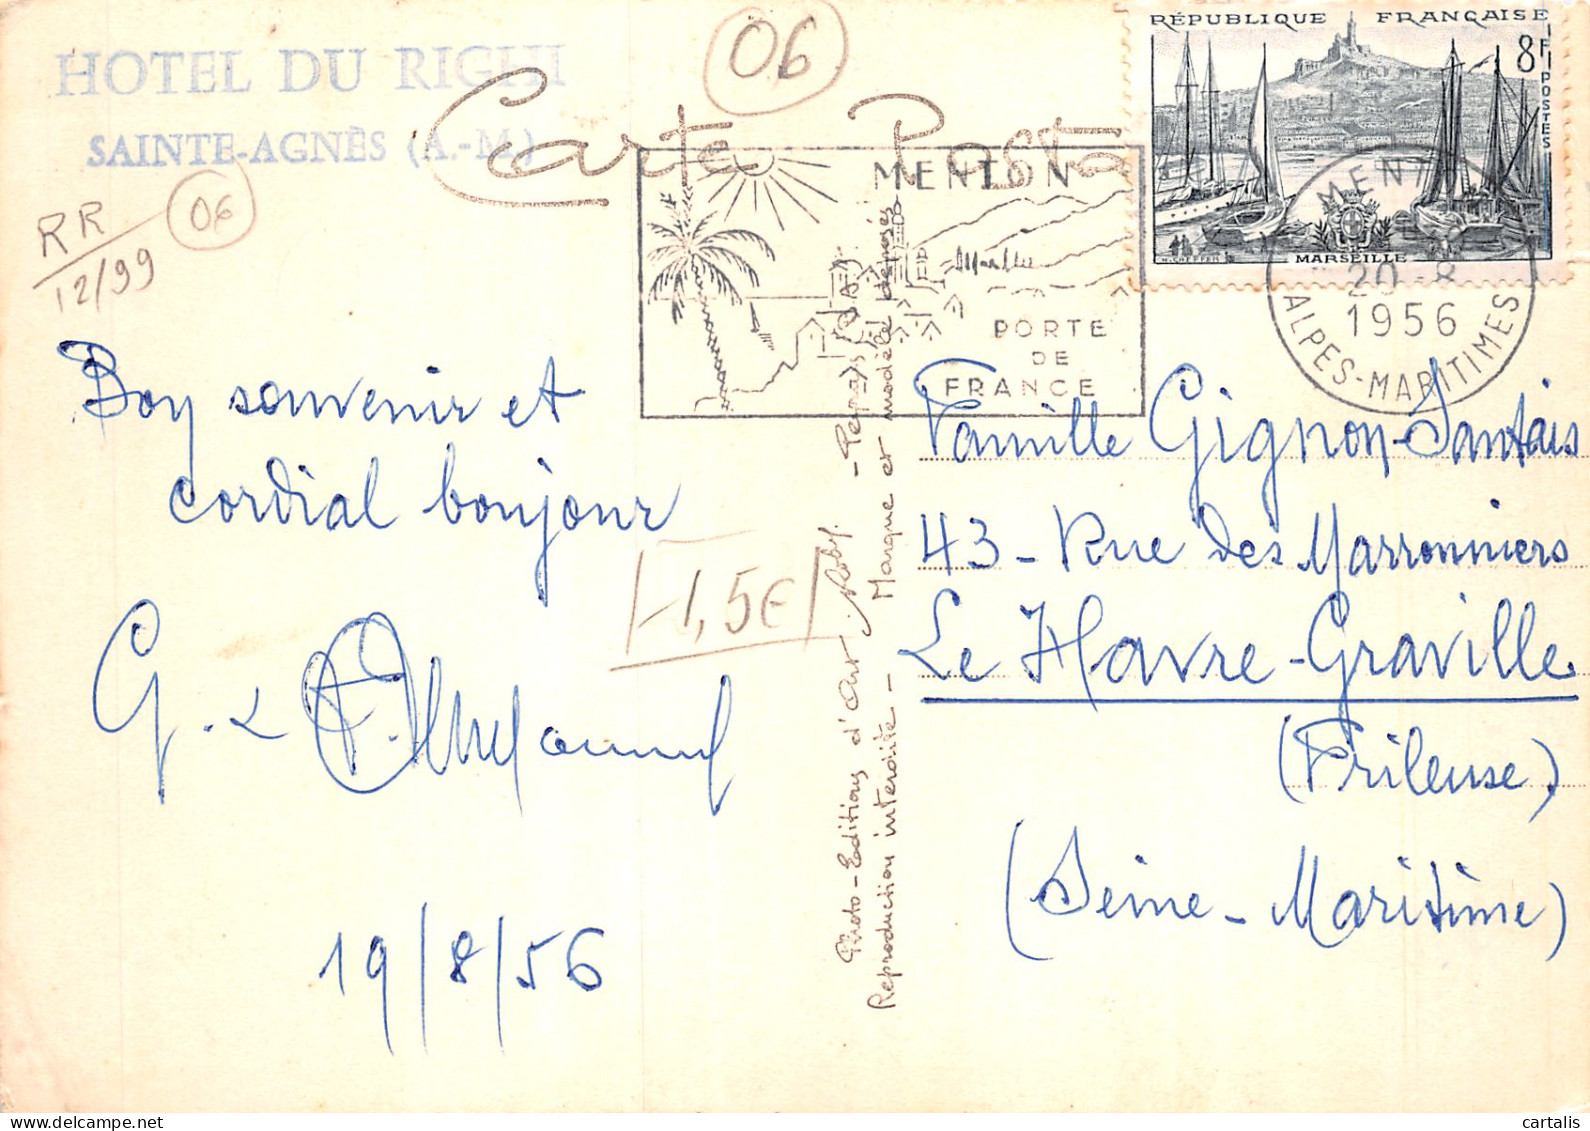 HOTEL DU RIGHI
SAINTE-AGNÈS (A.-M.)
06
Carte Posta
RÉPUBLIQUE FRANÇAISE
8F
POSTES
MARSEILLE
MENTON
PORTE
DE
FRANCE
MENTON
20-8
1956
ALPES-MARITIMES
06
RR
12/99
Bon souvenir et
cordial bonjour
1,5€
G.
19/8/56
Photo-Editions d'Art
Reproduction interdite - Marque et modèle déposés
Famille Gignon-Santais
43 - Rue des Marronniers
Le Havre-Graville
(Frileuse)
(Seine-Maritime)
delcampe.net
cartalis